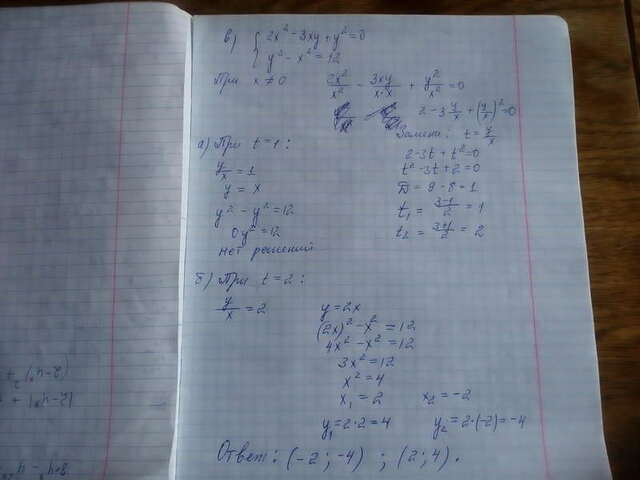 в) { 2x² - 3xy + y² = 0
y² - x² = 12
При x ≠ 0 2x²/x² - 3xy/x·x + y²/x² = 0
2 - 3 y/x + (y/x)² = 0
Замена: t = y/x
2 - 3t + t² = 0
t² - 3t + 2 = 0
D = 9 - 8 = 1
t₁ = 3-1/2 = 1
t₂ = 3+1/2 = 2
а) При t = 1:
y/x = 1
y = x
y² - y² = 12
0y² = 12
нет решений
б) При t = 2:
y/x = 2
y = 2x
(2x)² - x² = 12
4x² - x² = 12
3x² = 12
x² = 4
x₁ = 2 x₂ = -2
y₁ = 2·2 = 4 y₂ = 2·(-2) = -4
Ответ: (-2; -4) ; (2; 4).